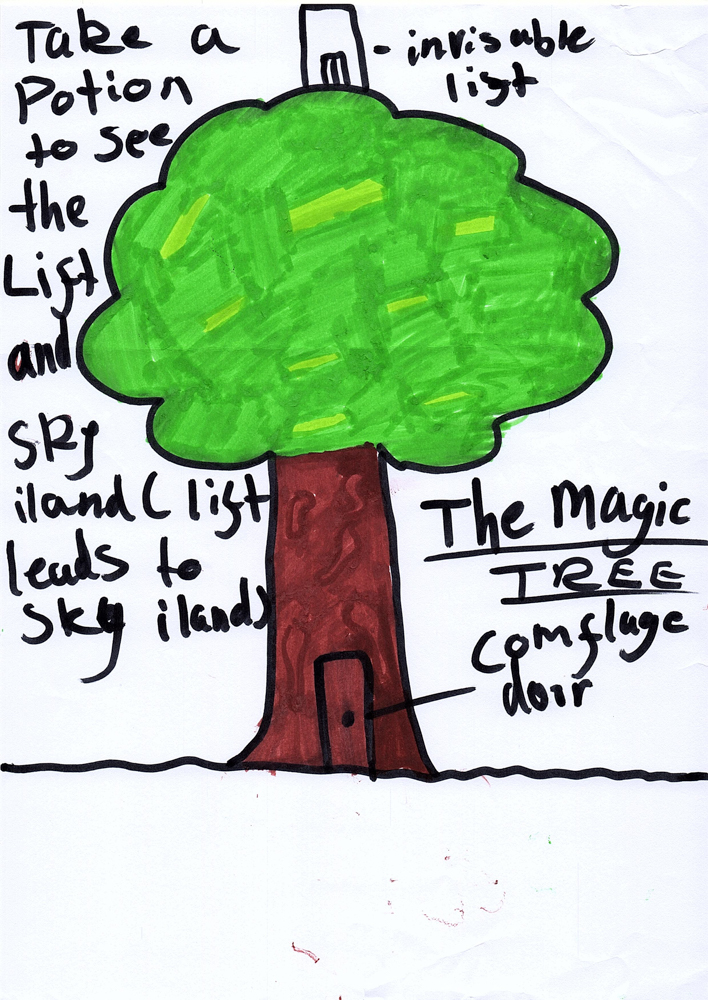 Take a
Potion
to see
the
Lift
and
sky
iland (lift
leads to
sky iland)
- invisable
lift
The Magic
TREE
comflage
door